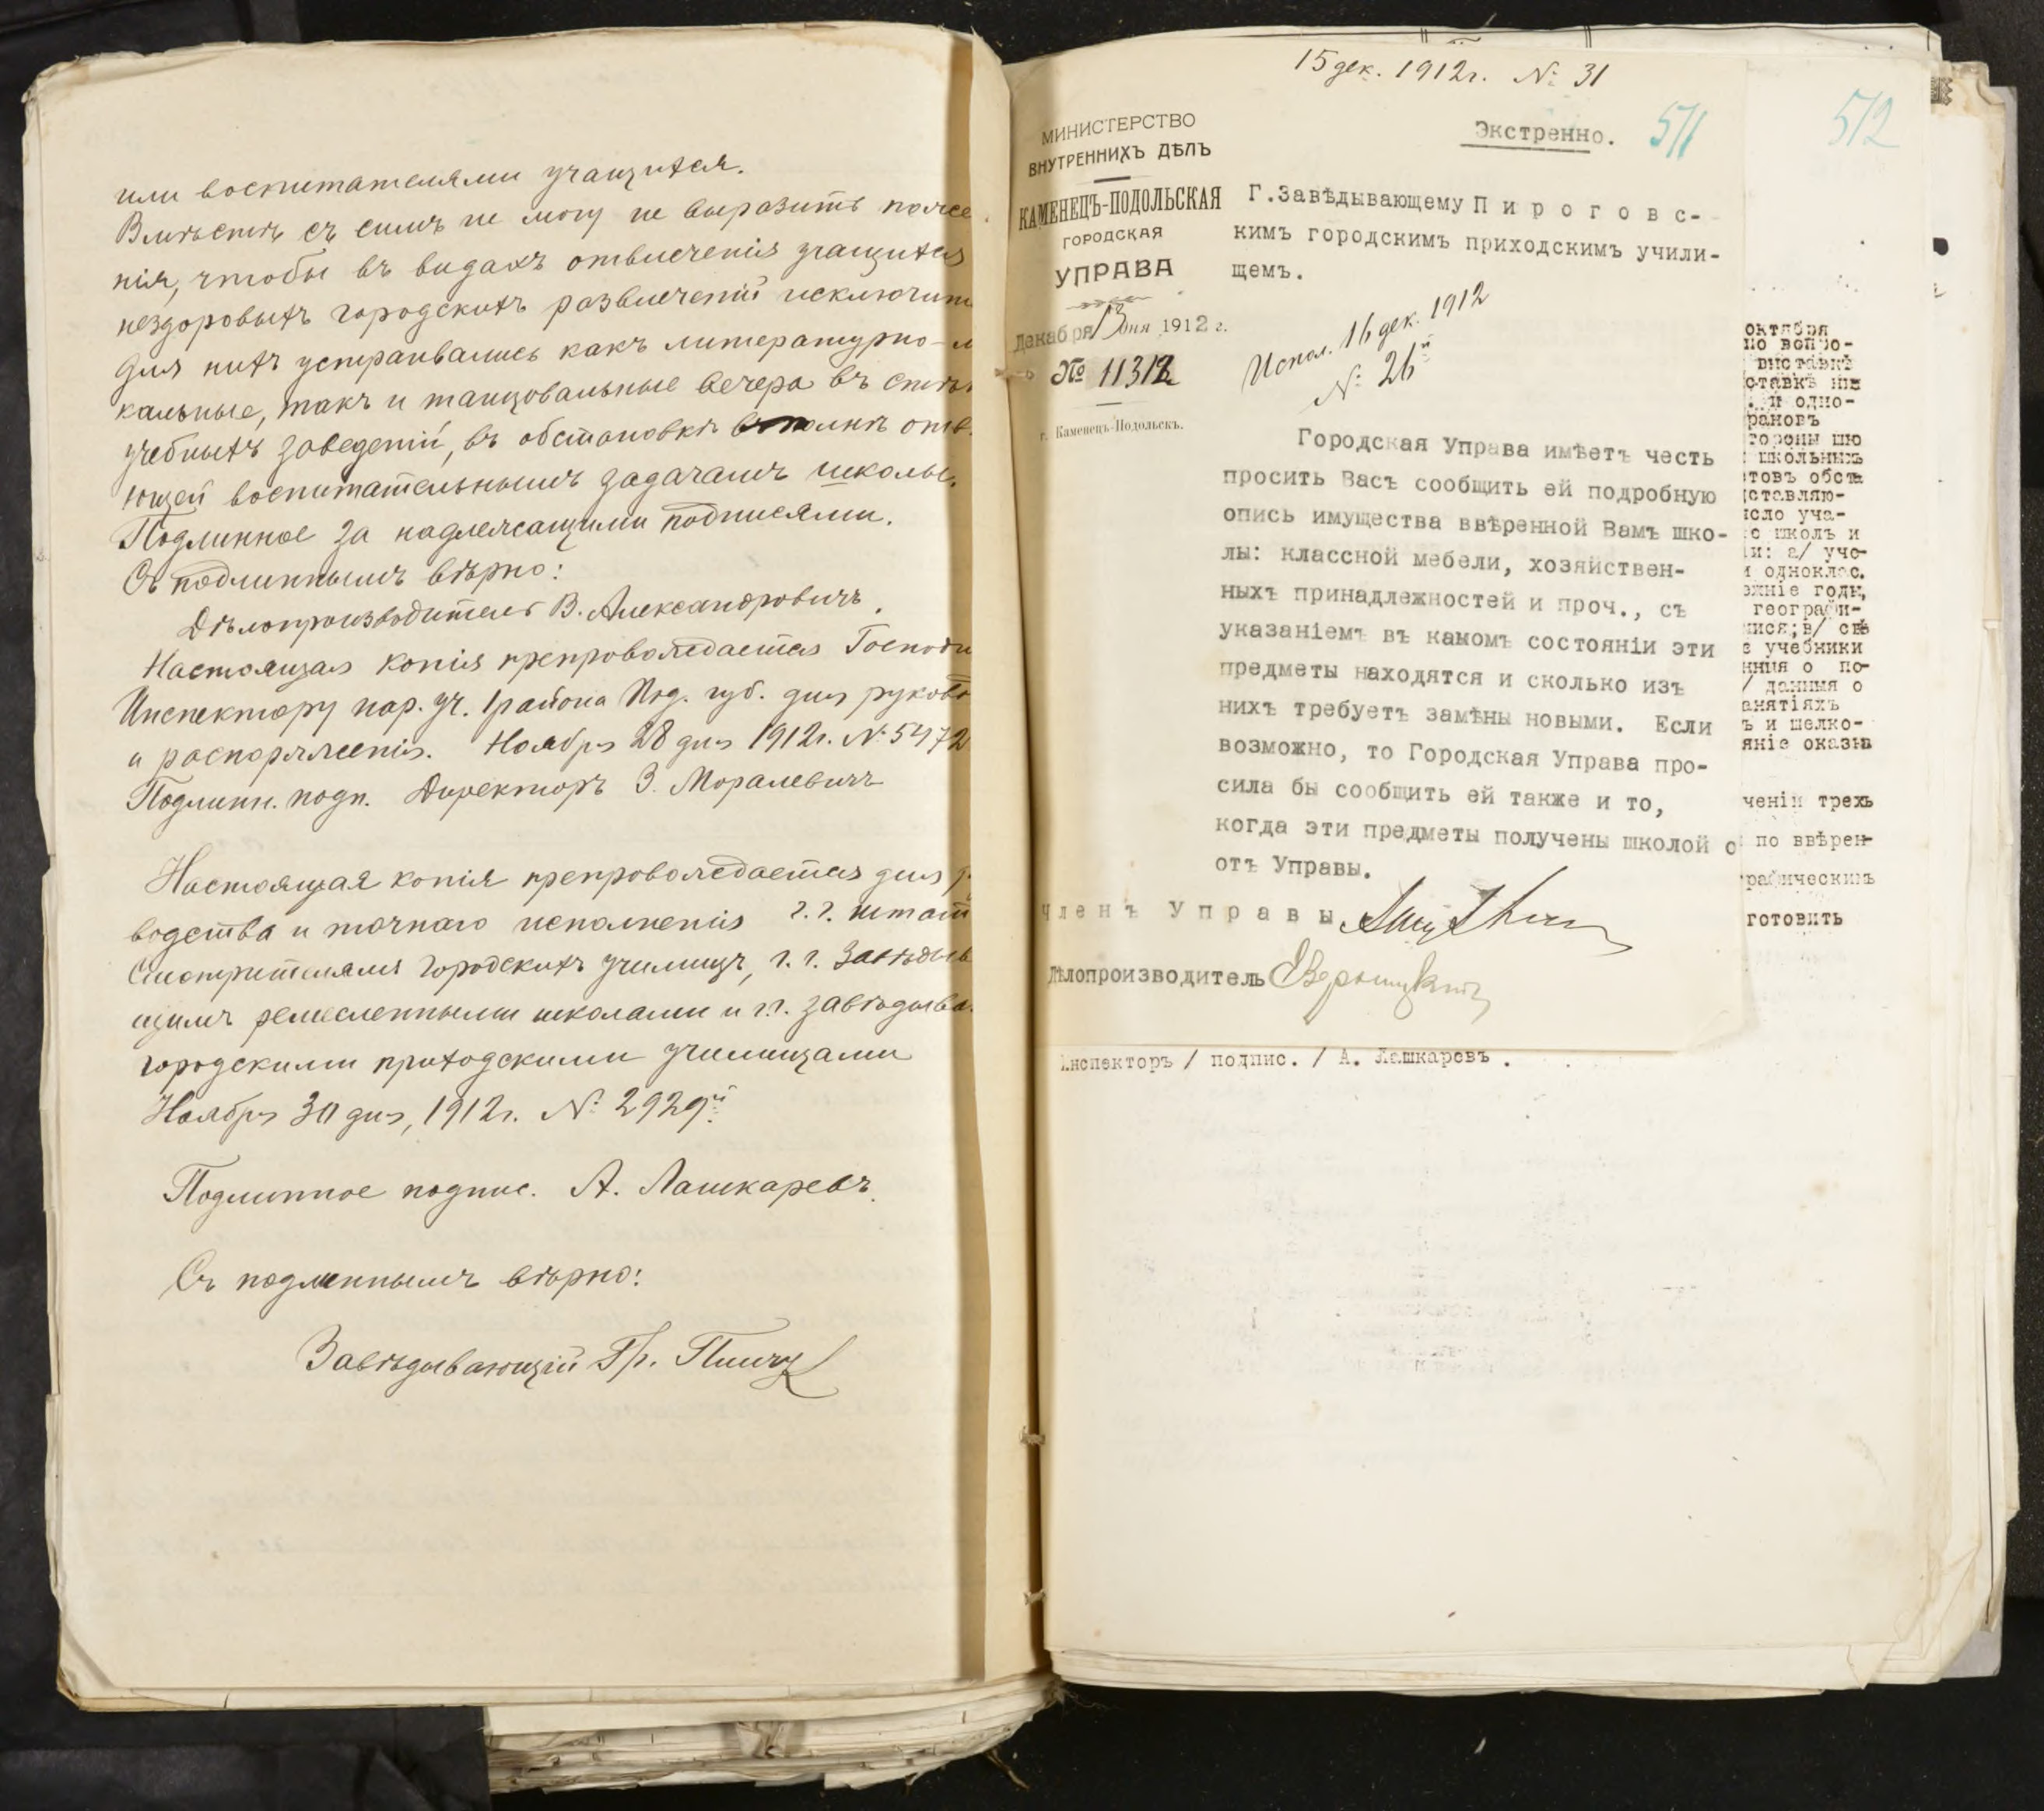 или воспитателями учащихся.
Вмѣстѣ съ симъ не могу не выразить поже
нія, чтобы въ видахъ отвлеченія учащихся
нездоровыхъ городскихъ развлеченій исключит
для нихъ устраивались какъ литературно-м
кальные, такъ и танцовальные вечера въ стѣн
учебныхъ заведеній, въ обстановкѣ вполнѣ отв.
ющей воспитательнымъ задачамъ школы.
Подлинное за надлежащими подписями.
Съ подлиннымъ вѣрно:
Дѣлопроизводитель В. Александровичъ.
Настоящая копія препровождается Господи
Инспектору нар. уч. 1 района Под. губ. для руково
и распоряженія. Ноября 28 дня 1912г. № 5472
Подлинн. подп. Директоръ З. Моралевичъ
Настоящая копія препровождается для р
водства и точнаго исполненія г.г. штат
Смотрителямъ городскихъ училищъ, г.г. Завѣдыв
щимъ ремесленными школами и г.г. завѣдыва
городскими приходскими училищами
Ноября 30 дня, 1912г. № 2929й
Подлинное подпис. А. Лашкаревъ.
Съ подлиннымъ вѣрно:
Завѣдывающій Гр.
15 дек. 1912г. № 31
МИНИСТЕРСТВО
ВНУТРЕННИХЪ ДѢЛЪ
КАМЕНЕЦЪ-ПОДОЛЬСКАЯ
ГОРОДСКАЯ
УПРАВА
Декабря 13 дня 1912 г.
№ 11312
г. Каменецъ-Подольскъ.
Экстренно.
511
Г.Завѣдывающему Пироговс-
кимъ городскимъ приходскимъ учили-
щемъ.
Испол. 16 дек. 1912
№ 26й
Городская Управа имѣетъ честь
просить Васъ сообщить ей подробную
опись имущества ввѣренной Вамъ шко-
лы: классной мебели, хозяйствен-
ныхъ принадлежностей и проч., съ
указаніемъ въ какомъ состояніи эти
предметы находятся и сколько изъ
нихъ требуетъ замѣны новыми. Если
возможно, то Городская Управа про-
сила бы сообщить ей также и то,
когда эти предметы получены школой о
отъ Управы.
Членъ Управы
Дѣлопроизводитель
Инспекторъ / подпис. / А. Лашкаревъ .
512
октября
по вопро-
выставкѣ
ставкѣ
и одно-
рановъ
тороны
школьныхъ
товъ
ставляю-
исло уча-
школъ и
и: а/ уче-
и одноклас.
жніе годы,
географи-
мися; в/
учебники
нія о по-
/ данныя о
анятіяхъ
ъ и шелко-
яніе оказы
ченіи трехъ
по ввѣрен-
рафическимъ
готовить